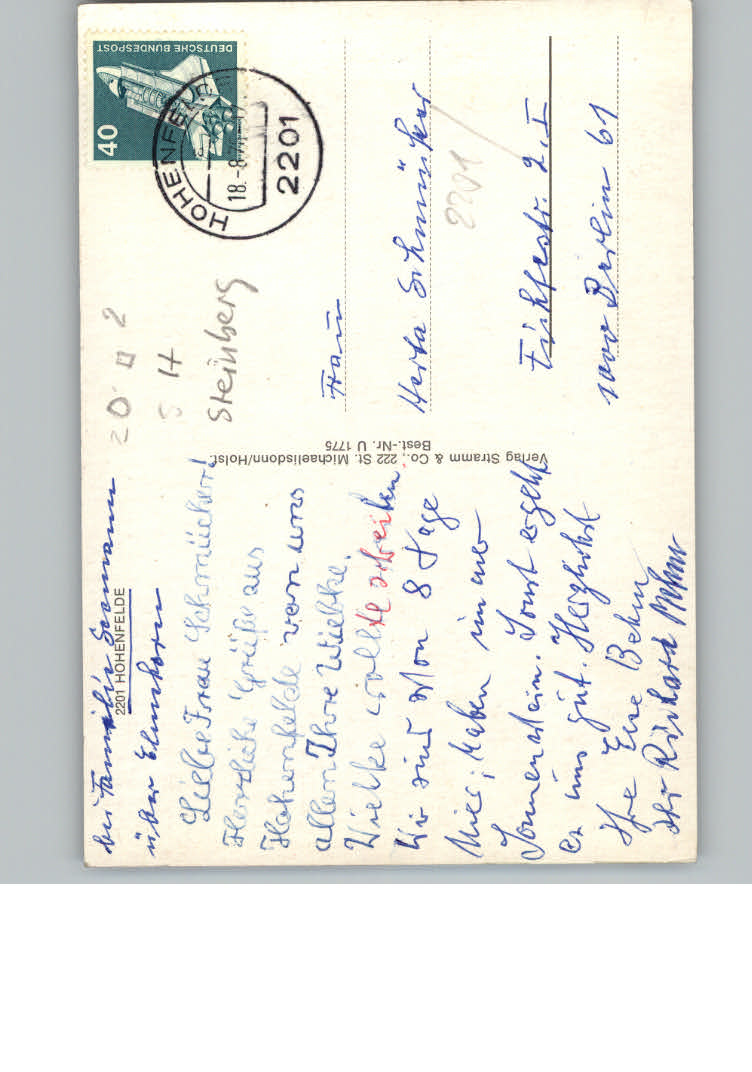 bei Familie Seemann
2201 HOHENFELDE
über Elmshorn
Liebe Frau Schmücker!
Herzliche Grüße aus
Hohenfelde von uns
allen Ihre Wiebke.
Wiebke wollte schreiben.
Wir sind schon 8 Tage
hier, haben immer
Sonnenschein. Sonst ergeht
es uns gut. Herzlichst
Ihre Else Behm
Ihr Richard Behm
Verlag Stramm & Co., 222 St. Michaelisdonn/Holst.
Best.-Nr. U 1775
DEUTSCHE BUNDESPOST
40
HOHENFELDE
18.-8.
2201
20 2
S H
Steinberg
Frau
Herta Schmücker
2201
Fichtestr. 2. I
1000 Berlin 61